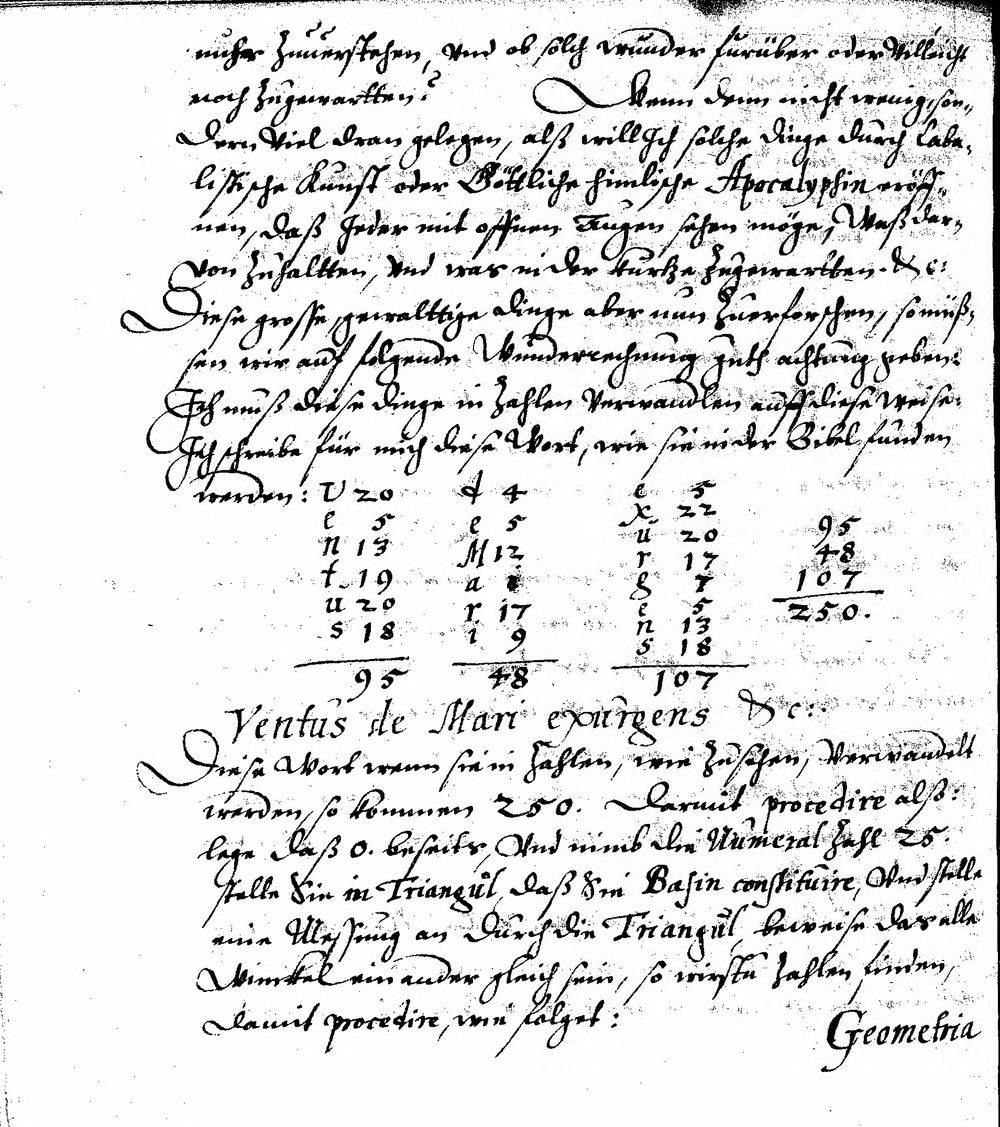 nicher Zuuerstehen, Vnd ob solch wunder furüber oder Villeicht
noch Zugewartten? Wenn denn nicht wenig, son-
dern Viel dran gelegen, alß will Ich solche dinge durch Caba-
listische Kunst oder Göttliche himlische Apocalyphin eröff-
nen, daß Jeder mit offnen Augen sehen möge, Waß dar-
von Zuhaltten, Vnd was in der kurtze Zugewartten. &c:
Diese grosse, gewalttige dinge aber nun Zuerforschen, so müß-
sen wir auf folgende Wunderrechnung guth achtung geben:
Ich muß diese dinge in Zahlen Verwandlen auff diese weise:
Ich schreibe für mich diese Wort, wie sie in der Bibel funden
werden: V 20 d 4 e 5
e 5 e 5 x 22 95
n 13 M 12 u 20 48
t 19 a 1 r 17 107
u 20 r 17 g 7 250.
s 18 i 9 e 5
n 13
s 18
95 48 107
Ventus de Mari exurgens &c:
Diese Wort wenn sie in Zahlen, wie Zusehen, Verwandelt
werden, so kommen 250. Darmit procedire alß:
lege daß 0. beseits, Vnd nimb die Numeral Zahl 25.
stelle Sie in Triangul, daß Sie Basin constituire, Vnd stelle
eine Messung an durch die Triangul, beweise das alle
Winckel einander gleich sein, so wirstu Zahlen finden,
damit procedire, wie folget:
Geometria